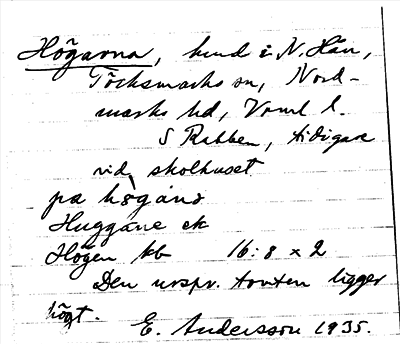 Högarna, hmd i N. Hån,
Töcksmarks sn, Nord-
marks hd, Vrml l.
S Rabben, tidigare
vid skolhuset
på högånɔ
Huggane ek
Högen kb 16:8 x 2
Den urspr. tomten ligger
högt.
E. Andersson 1935.